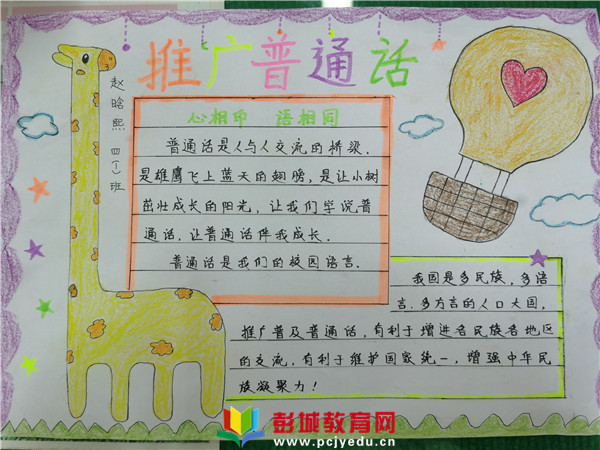 推广普通话
赵晗熙 四(1)班
心相印 语相同
普通话是人与人交流的桥梁.
是雄鹰飞上蓝天的翅膀,是让小树
茁壮成长的阳光,让我们学说普
通话,让普通话伴我成长.
普通话是我们的校园语言.
我国是多民族,多语
言.多方言的人口大国,
推广普及普通话,有利于增进各民族各地区
的交流,有利于维护国家统一,增强中华民
族凝聚力!
彭城教育网
www.pcjyedu.cn